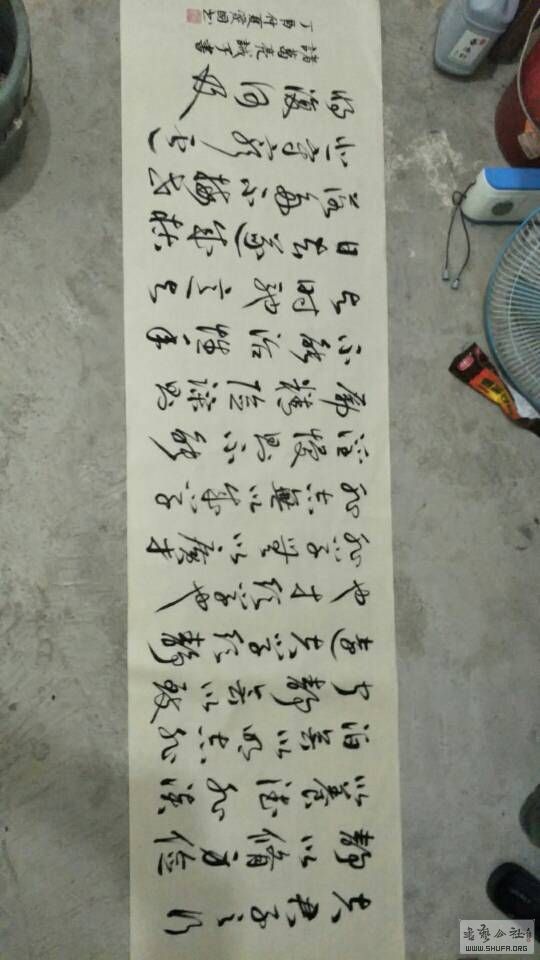 夫君子之行
静以修身俭
以养德非淡
泊无以明志非
宁静无以致
远夫学须静
也才须学也
非学无以广才
非志無以成学
淫慢则不能
励精险躁则
不能治性年
与时驰意与
日去遂成枯
落多不接世
悲守穷庐
将復何及
諸葛亮誡子書
丁酉仲夏爱国书
書藝公社
WWW.SHUFA.ORG